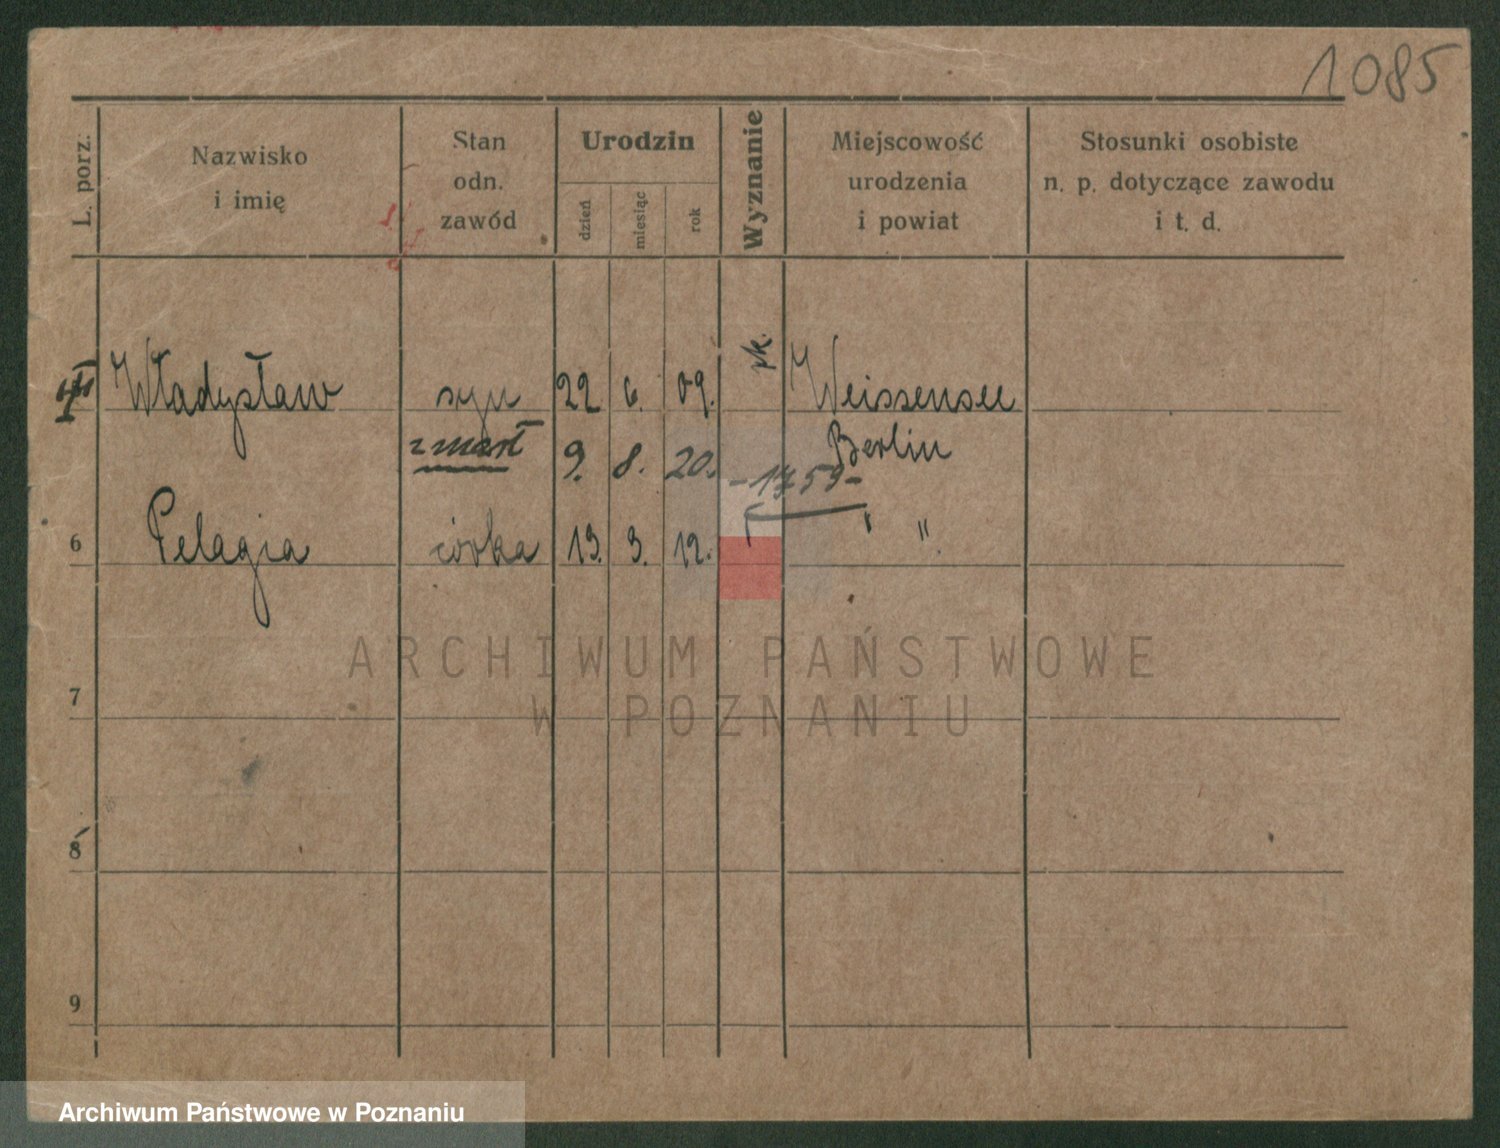 1085
L. porz.
Nazwisko
i imię
Stan
odn.
zawód
Urodzin
dzień
miesiąc
rok
Wyznanie
Miejscowość
urodzenia
i powiat
Stosunki osobiste
n. p. dotyczące zawodu
i t. d.
Władysław syn 22 6. 09. rk. Weissensee
zmarł 9. 8. 20. Berlin
-1759-
6 Pelagia córka 13. 3. 12. " "
ARCHIWUM PAŃSTWOWE
W POZNANIU
7
8
9
Archiwum Państwowe w Poznaniu